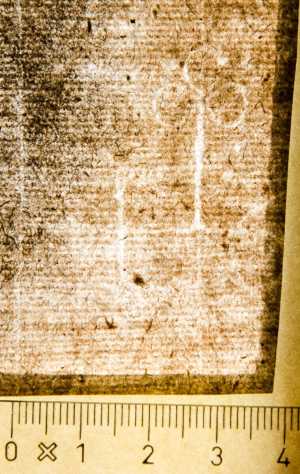 0 1 2 3 4